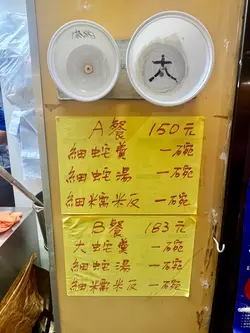 太
A餐 150元
細蛇羹 一碗
細蛇湯 一碗
細糯米反 一碗
B餐 183元
大蛇羹 一碗
細蛇湯 一碗
細糯米反 一碗